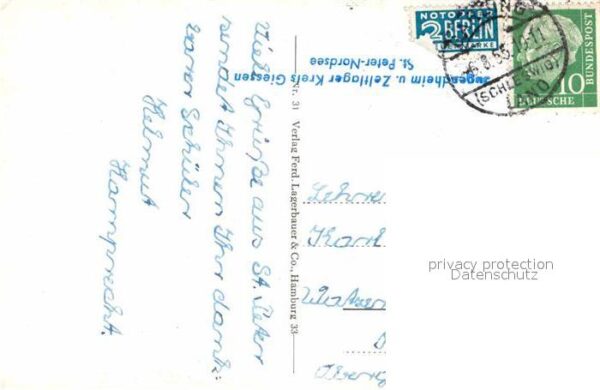 Viele Grüße aus St. Peter
sendet Ihnen Ihr dank=
barer Schüler
Helmut
Hamprecht.
Nr. 31 Verlag Ferd. Lagerbauer & Co., Hamburg 33
Jugendheim u. Zeltlager Kreis Giessen
St. Peter-Nordsee
NOTOPFER
2 BERLIN
STEUERMARKE
6.8.55.
(SCHLESWIG)
10
DEUTSCHE
BUNDESPOST
Lehrer
Karl
privacy protection
Datenschutz